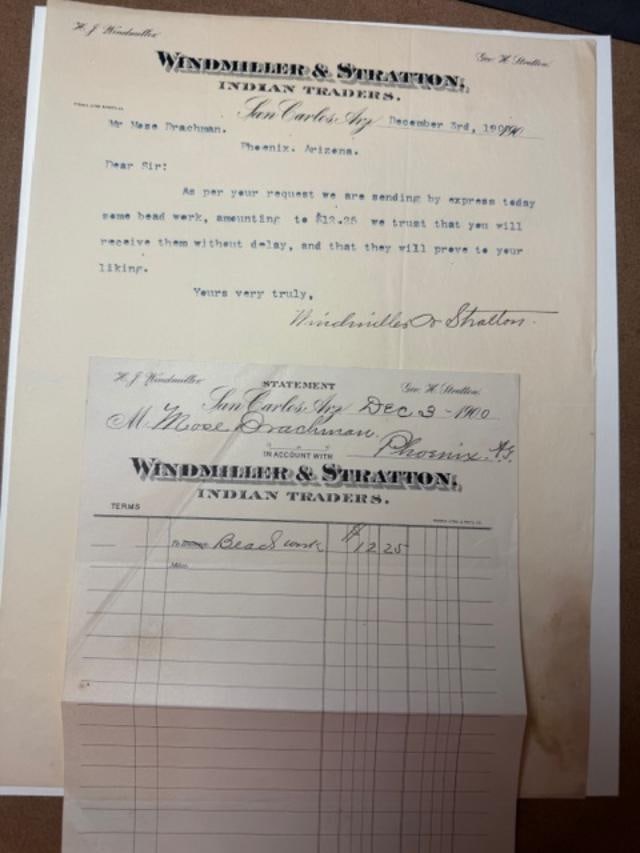 H. J. Windmiller
Geo. H. Stratton.
WINDMILLER & STRATTON,
INDIAN TRADERS.
San Carlos, Arz December 3rd, 1900
Mr Mose Drachman.
Phoenix. Arizona.
Dear Sir:
As per your request we are sending by express today
some bead work, amounting to $12.25 we trust that you will
receive them without delay, and that they will prove to your
liking.
Yours very truly,
Windmiller & Stratton.
H. J. Windmiller
STATEMENT
Geo. H. Stratton.
San Carlos, Arz Dec 3 - 1900
M. Mose Drachman.
Phoenix. A.T.
IN ACCOUNT WITH
WINDMILLER & STRATTON,
INDIAN TRADERS.
TERMS
To Bead work $ 12 25